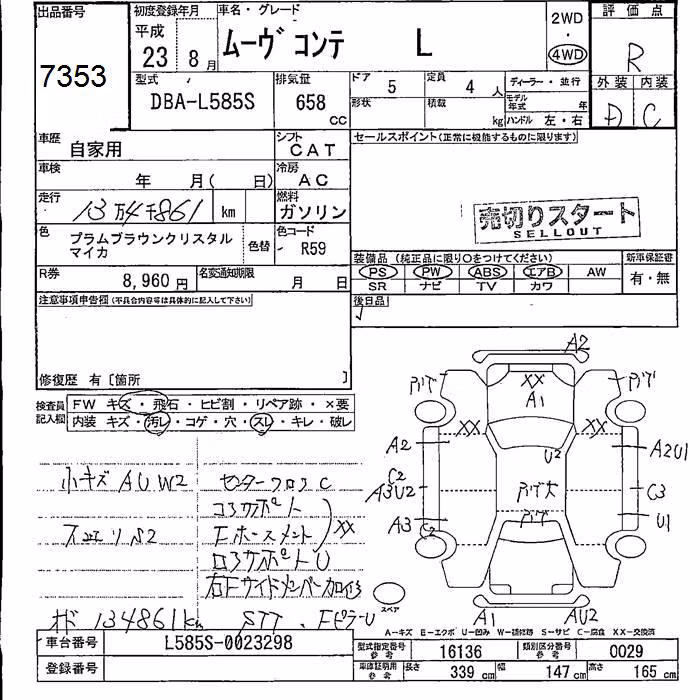 出品番号
7353
初度登録年月
平成
23 8月
車名・グレード
ムーヴ コンテ L
2WD
・
4WD
評価点
R
外装 内装
D C
型式
DBA-L585S
排気量
658
CC
ドア 5
定員 4 人
形状
積載 kg
ディーラー・並行
モデル年式 年
ハンドル 左・右
車歴
自家用
シフト
CAT
セールスポイント(正常に機能するものに限ります)
車検
年 月( 日)
冷房
AC
走行
13万4千861 km
燃料
ガソリン
売切りスタート
SELLOUT
色
プラムブラウンクリスタル
マイカ
色替
色コード
R59
装備品(純正品に限り○をつけてください)
PS PW ABS エアB AW
SR ナビ TV カワ
新車保証書
有・無
R券
8,960円
名変通知期限
月 日
後日品
注意事項申告欄(不具合内容等は具体的に記入して下さい)
修復歴 有〔箇所 〕
検査員
記入欄
FW キズ・飛石・ヒビ割・リペア跡・×要
内装 キズ・汚レ・コゲ・穴・スレ・キレ・破レ
小キズ AU W2
センターフロア C
コアサポート
Fホースメント
XX
ロアサポート U
右Fサイドメンバー加修
134861km
Fピラー U
A2
XX
A1
XX
XX
A2
U2
A2U1
C2
A3U2
C3
A3
C2
U1
A1
AU2
スペア
A-キズ E-エクボ U-凹み W-補修跡 S-サビ C-腐食 XX-交換済
車台番号
L585S-0023298
登録番号
型式指定番号
参考
16136
類別区分番号
参考
0029
車体証明用
参考
長さ 339 cm
幅 147 cm
高さ 165 cm